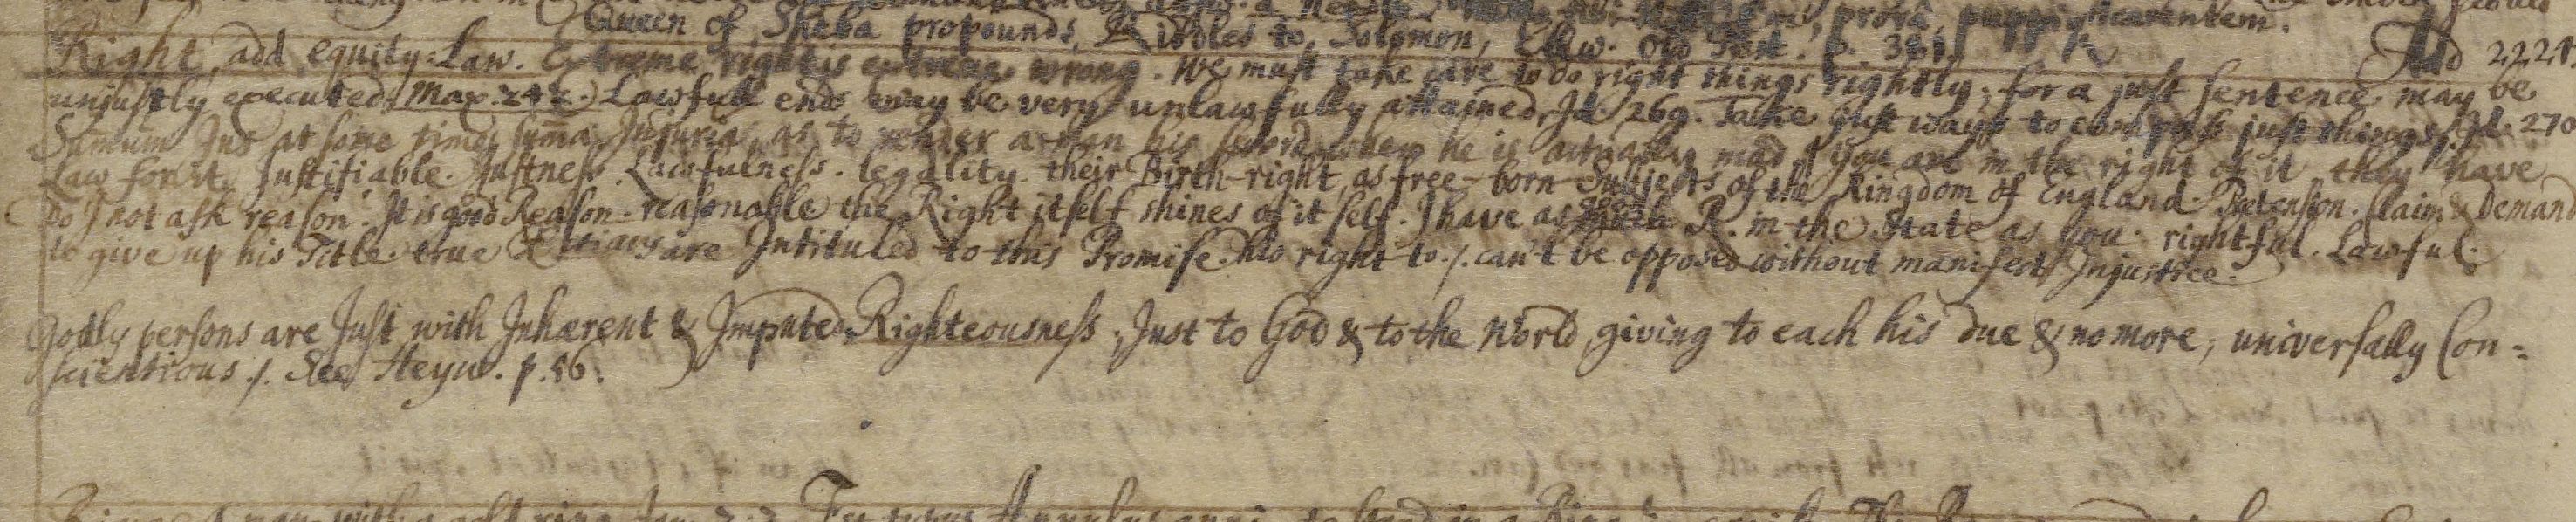 prora, puppi, carentem.
Queen of Sheba propounds Riddles to Solomon, Ellw. Old Test. p. 361. Add 2221.
Right, add equity: Law. Extreme right is extreme wrong. We must take care to do right things rightly; for a just sentence may be
unjustly executed (Max. 242.) Lawfull ends may be very unlawfully attained, Id 269. Take just ways to compass just things, Id. 270
Summum Jus at some times summa Injuria, as to render a man his sword when he is actually mad. if you are in the right of it they have
Law for it. Justifiable. Justness. Lawfulness. legality. their Birth-right, as free-born Subjects of the Kingdom of England. Pretension. Claim & Demand
Do I not ask reason. It is good Reason. reasonable the Right itself shines of it self. I have as good R. in the State as you. rightful. Lawful.
to give up his Title. true Xtians are Intituled to this Promise. his right to ./. can't be opposed without manifest Injustice.
Godly persons are Just with Inhærent & Imputed Righteousness; Just to God & to the World, giving to each his due & no more, universally Con=
scientious ./. See Heyw. p. 56.
with a gold ring Jam. 2.2